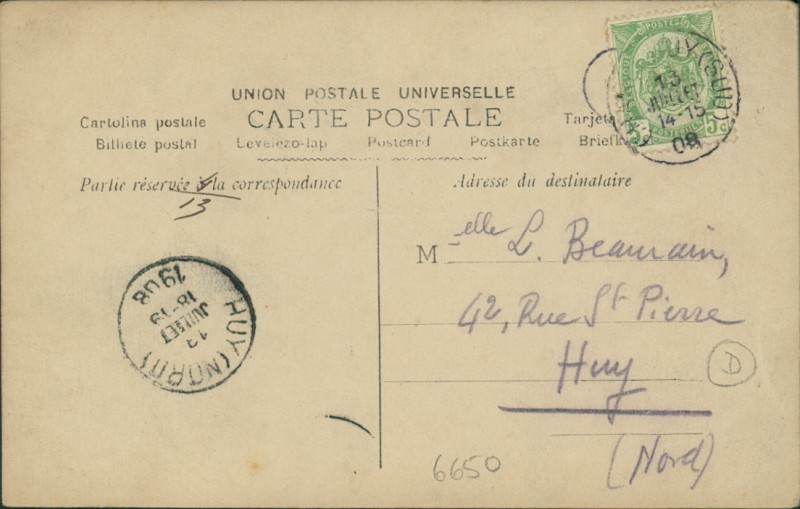 UNION POSTALE UNIVERSELLE
CARTE POSTALE
Cartolina postale
Tarjeta
Bilhete postal Levelezo-lap Postcard Postkarte Briefk
Partie réservée à la correspondance
Adresse du destinataire
13
POSTES
5c
HUY (SUD)
13
JUILLET
14-15
08
Melle L. Beaurain,
42, Rue St Pierre
Huy
(Nord)
D
HUY (NORD)
13
JUILLET
18-19
1908
6650